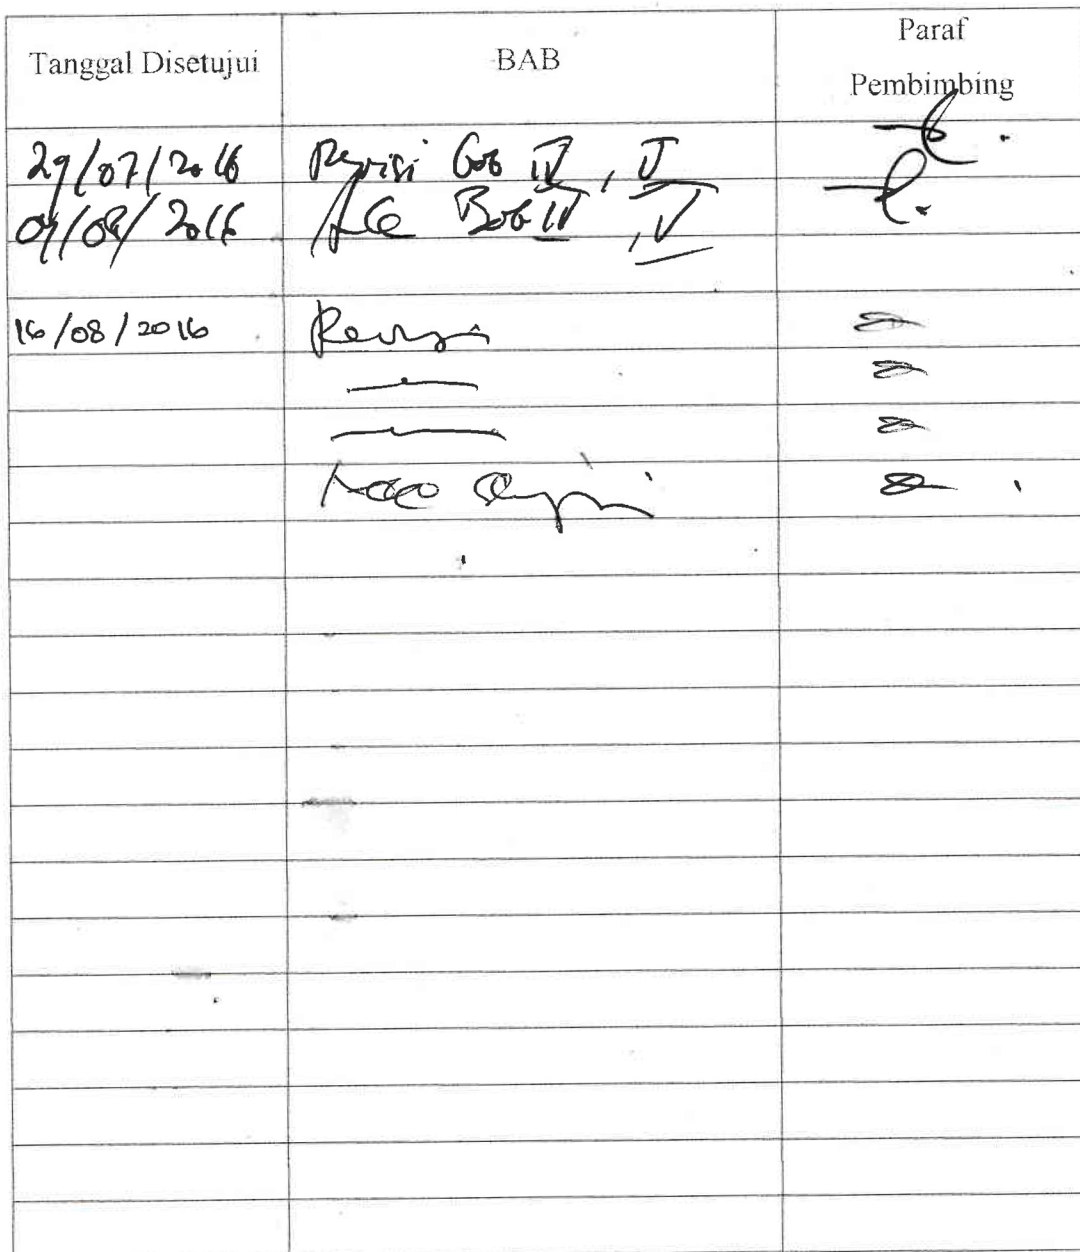 Tanggal Disetujui BAB Paraf
Pembimbing
29/07/2016 Revisi Bab IV, V
01/08/2016 Acc Bab IV, V
16/08/2016 Revisi
Acc